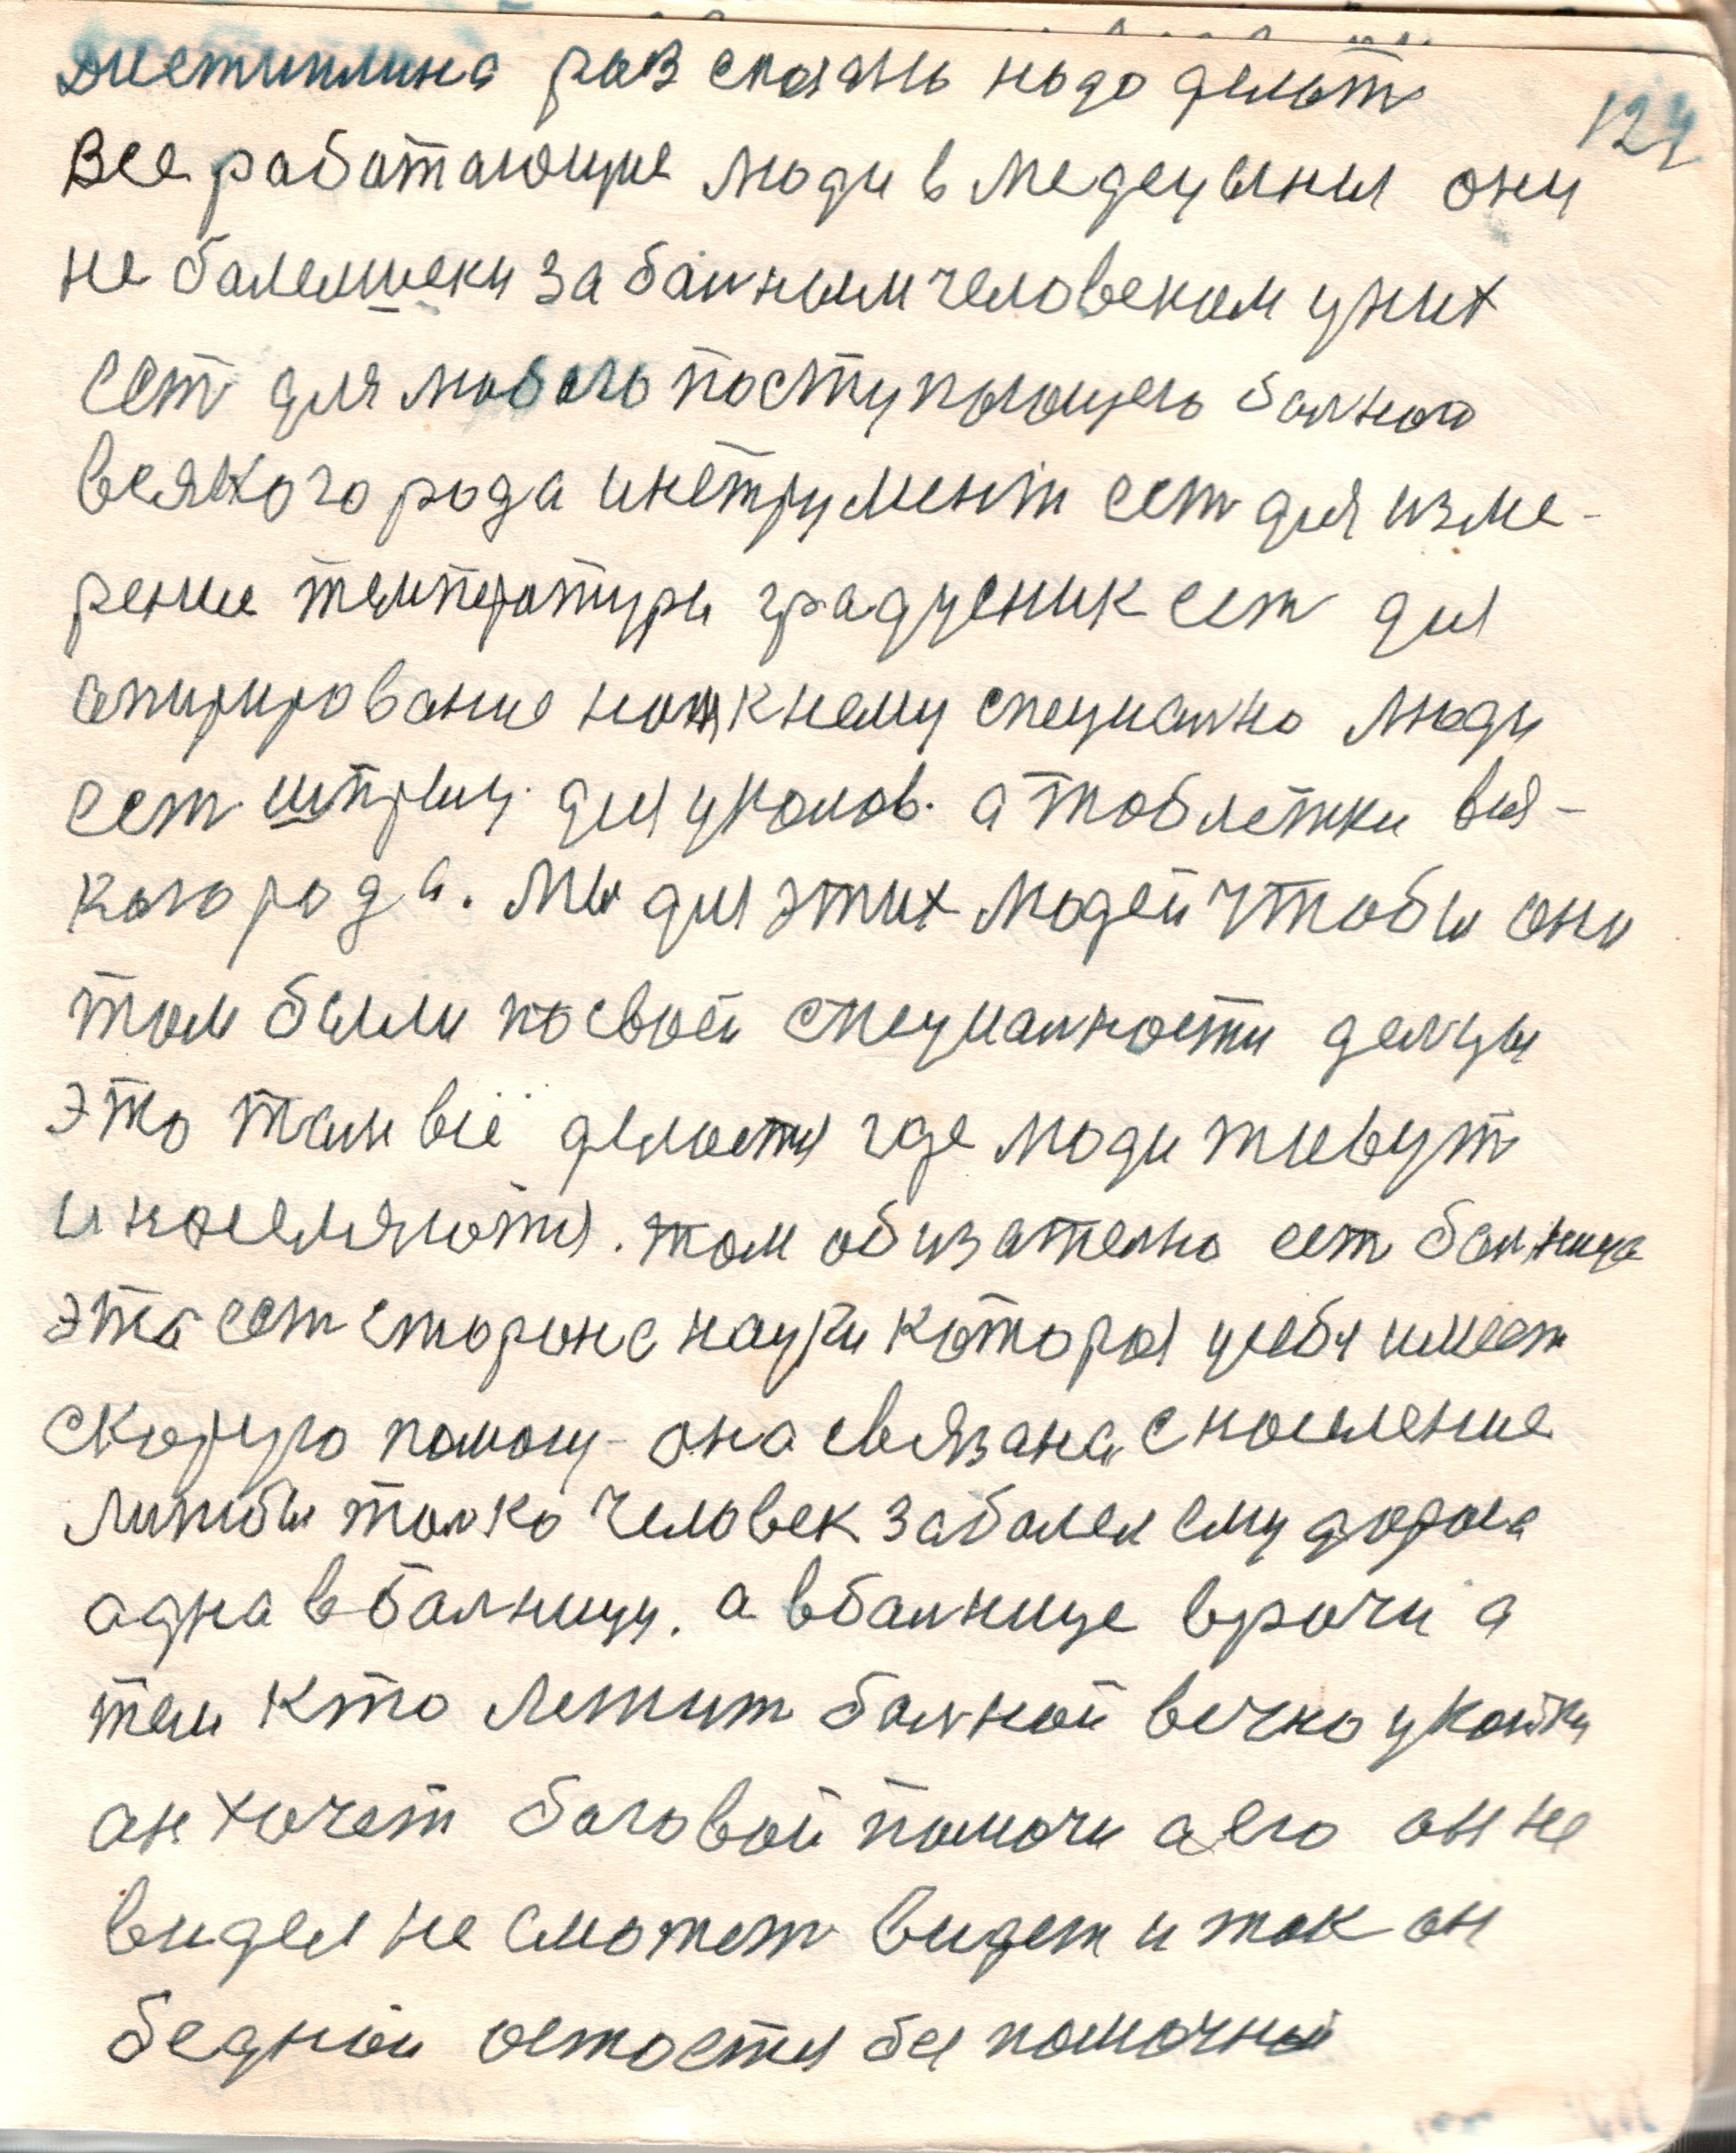 дистиплина раз сказано надо делать
124
Все работающие люди в медецыныи они
не балелшеки за балным человеком у них
сет для любого поступающего балного
всякого рода инструмент сет для изме-
рение температуры градусник сет для
апирирование нож к нему специално люди
сет шприц для уколов. а таблетки вся-
кого рода. Мы для этих людей чтобы они
там были по своей специалности делцы
это там всё делается где люди живут
и населяются. там обизателно сет балница
эта сет сторона науки которая у себя имеет
скорую помощ она связана с население
лижбы толко человек заболел ему дорога
адна в балницу. а в балнице врачи а
там кто лежит балной вечно у койки
он хочет баговой помочи а его он не
видел не сможет видет и так он
бедной остается беспомочный